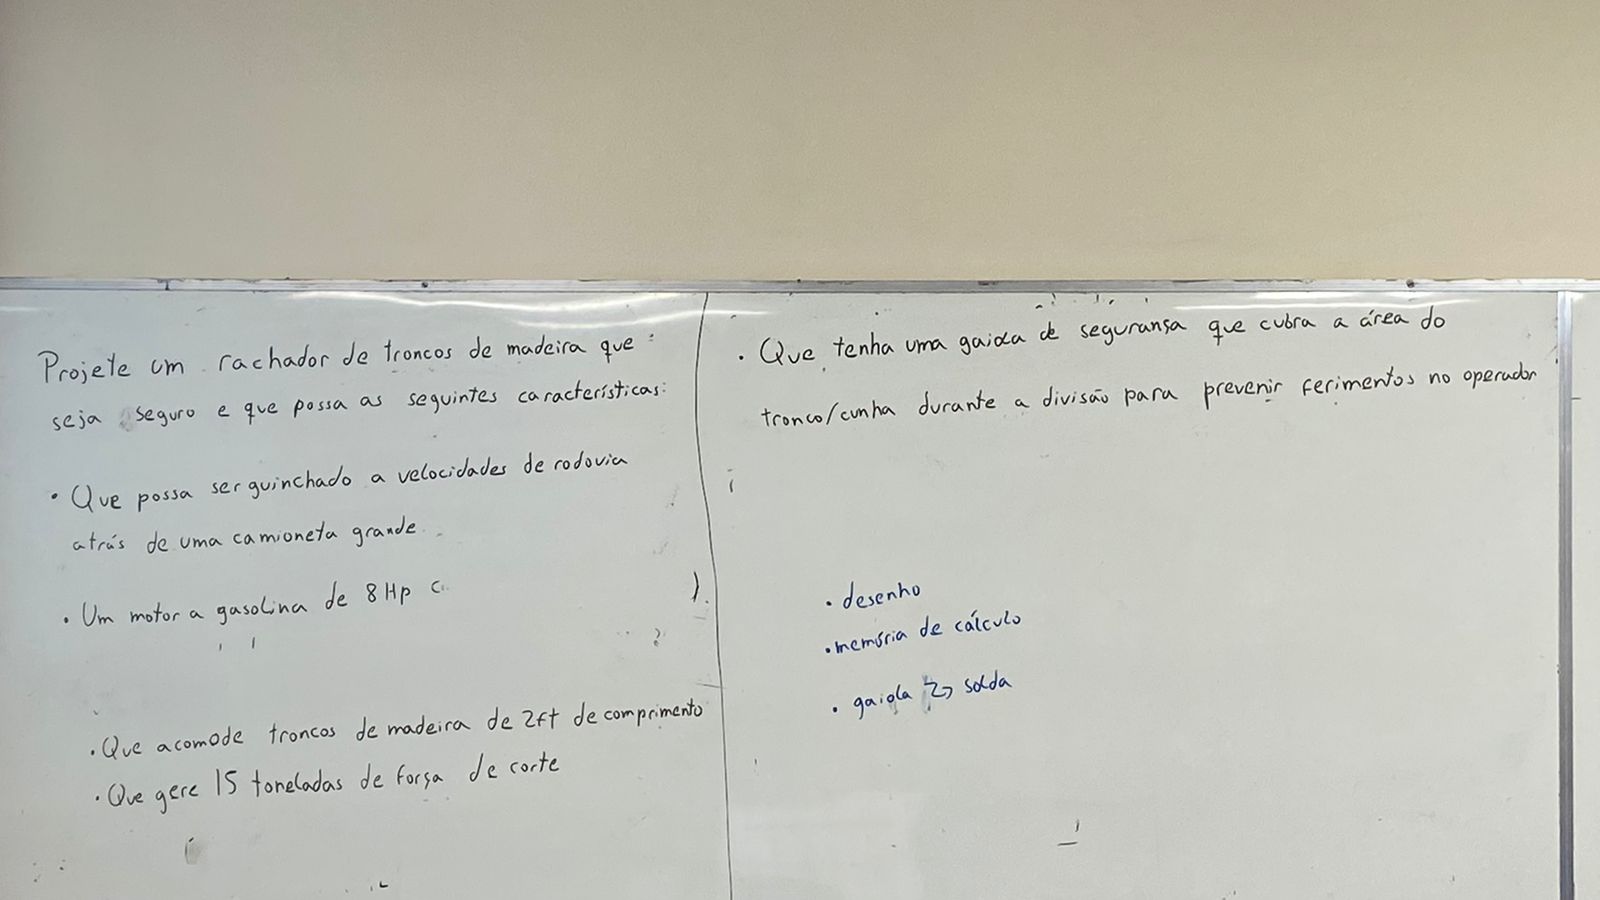 Projete um rachador de troncos de madeira que
seja seguro e que possa as seguintes características:
• Que possa ser guinchado a velocidades de rodovia
atrás de uma camioneta grande
• Um motor a gasolina de 8 Hp
• Que acomode troncos de madeira de 2ft de comprimento
• Que gere 15 toneladas de força de corte
• Que tenha uma gaiola de seguransa que cubra a área do
tronco/cunha durante a divisão para prevenir ferimentos no operador
• desenho
• memória de cálculo
• gaiola → solda